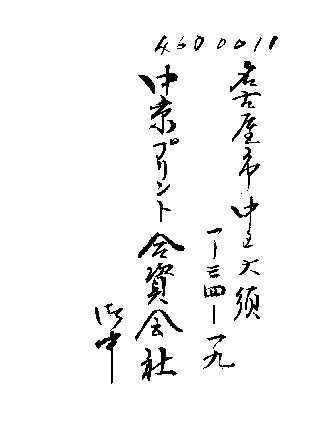 4600011
名古屋市中区大須
一ー三四ー一九
中京プリント合資会社
御中